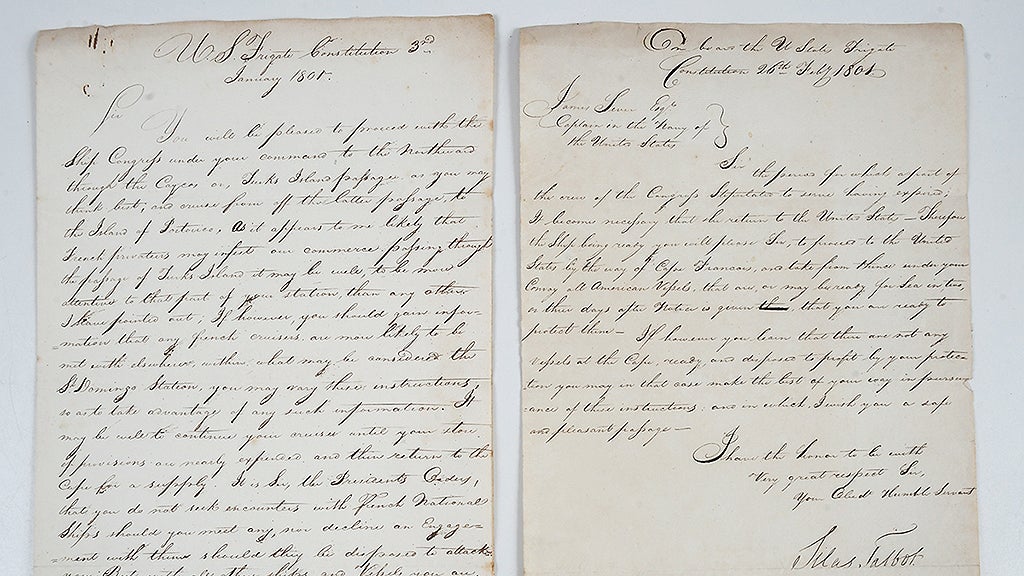 U. S. Frigate Constitution 3rd
January 1801.
Sir
You will be pleased to proceed with the
Ship Congress under your command, to the Northward
through the Caycos or, Turks Island passage, as you may
think best; and cruise from off the latter passage, to
the Island of Portorico, As it appears to me likely that
French privatiers may infest our commerce, passing through
the passage of Turks Island it may be well, to be more
attentive to that part of your station, than any other
I have pointed out; If however, you should gain infor=
=mation that any french cruisers are more likely to be
met with elsewhere, within what may be considered the
St. Domingo Station, you may vary these instructions,
so as to take advantage of any such information. It
may be well to continue your cruise until your store
of provisions are nearly expended and then return to the
Cape for a supply. It is Sir, the Presidents Orders,
that you do not seek encounters with French National
Ships should you meet any, nor decline an Engage=
=ment with them should they be disposed to attack
you. But with all other ships and Vessels you are,
On board the U States Frigate
Constitution 26th Feby 1801
James Sever Esqr.
Captain in the Navy of
the United States
Sir
the period for which a part of
the crew of the Congress Stipulated to serve having expired;
It becomes necessary that she return to the United States — Therefore
the Ship being ready you will please Sir, to proceed to the United
States by the way of Cape Francois, and take from thence under your
Convoy all American Vessels, that are, or may be ready for Sea in two,
or three days after Notice is given that you are ready to
protect them —
If however you learn that there are not any
vessels at the Cape, ready and disposed to profit by your protec
tion you may in that case make the best of your way in pursu
=ance of these instructions: and in which, I wish you a safe
and pleasant passage —
I have the honor to be with
Very great respect Sir,
Your Obedt Humble Servant
Silas Talbot